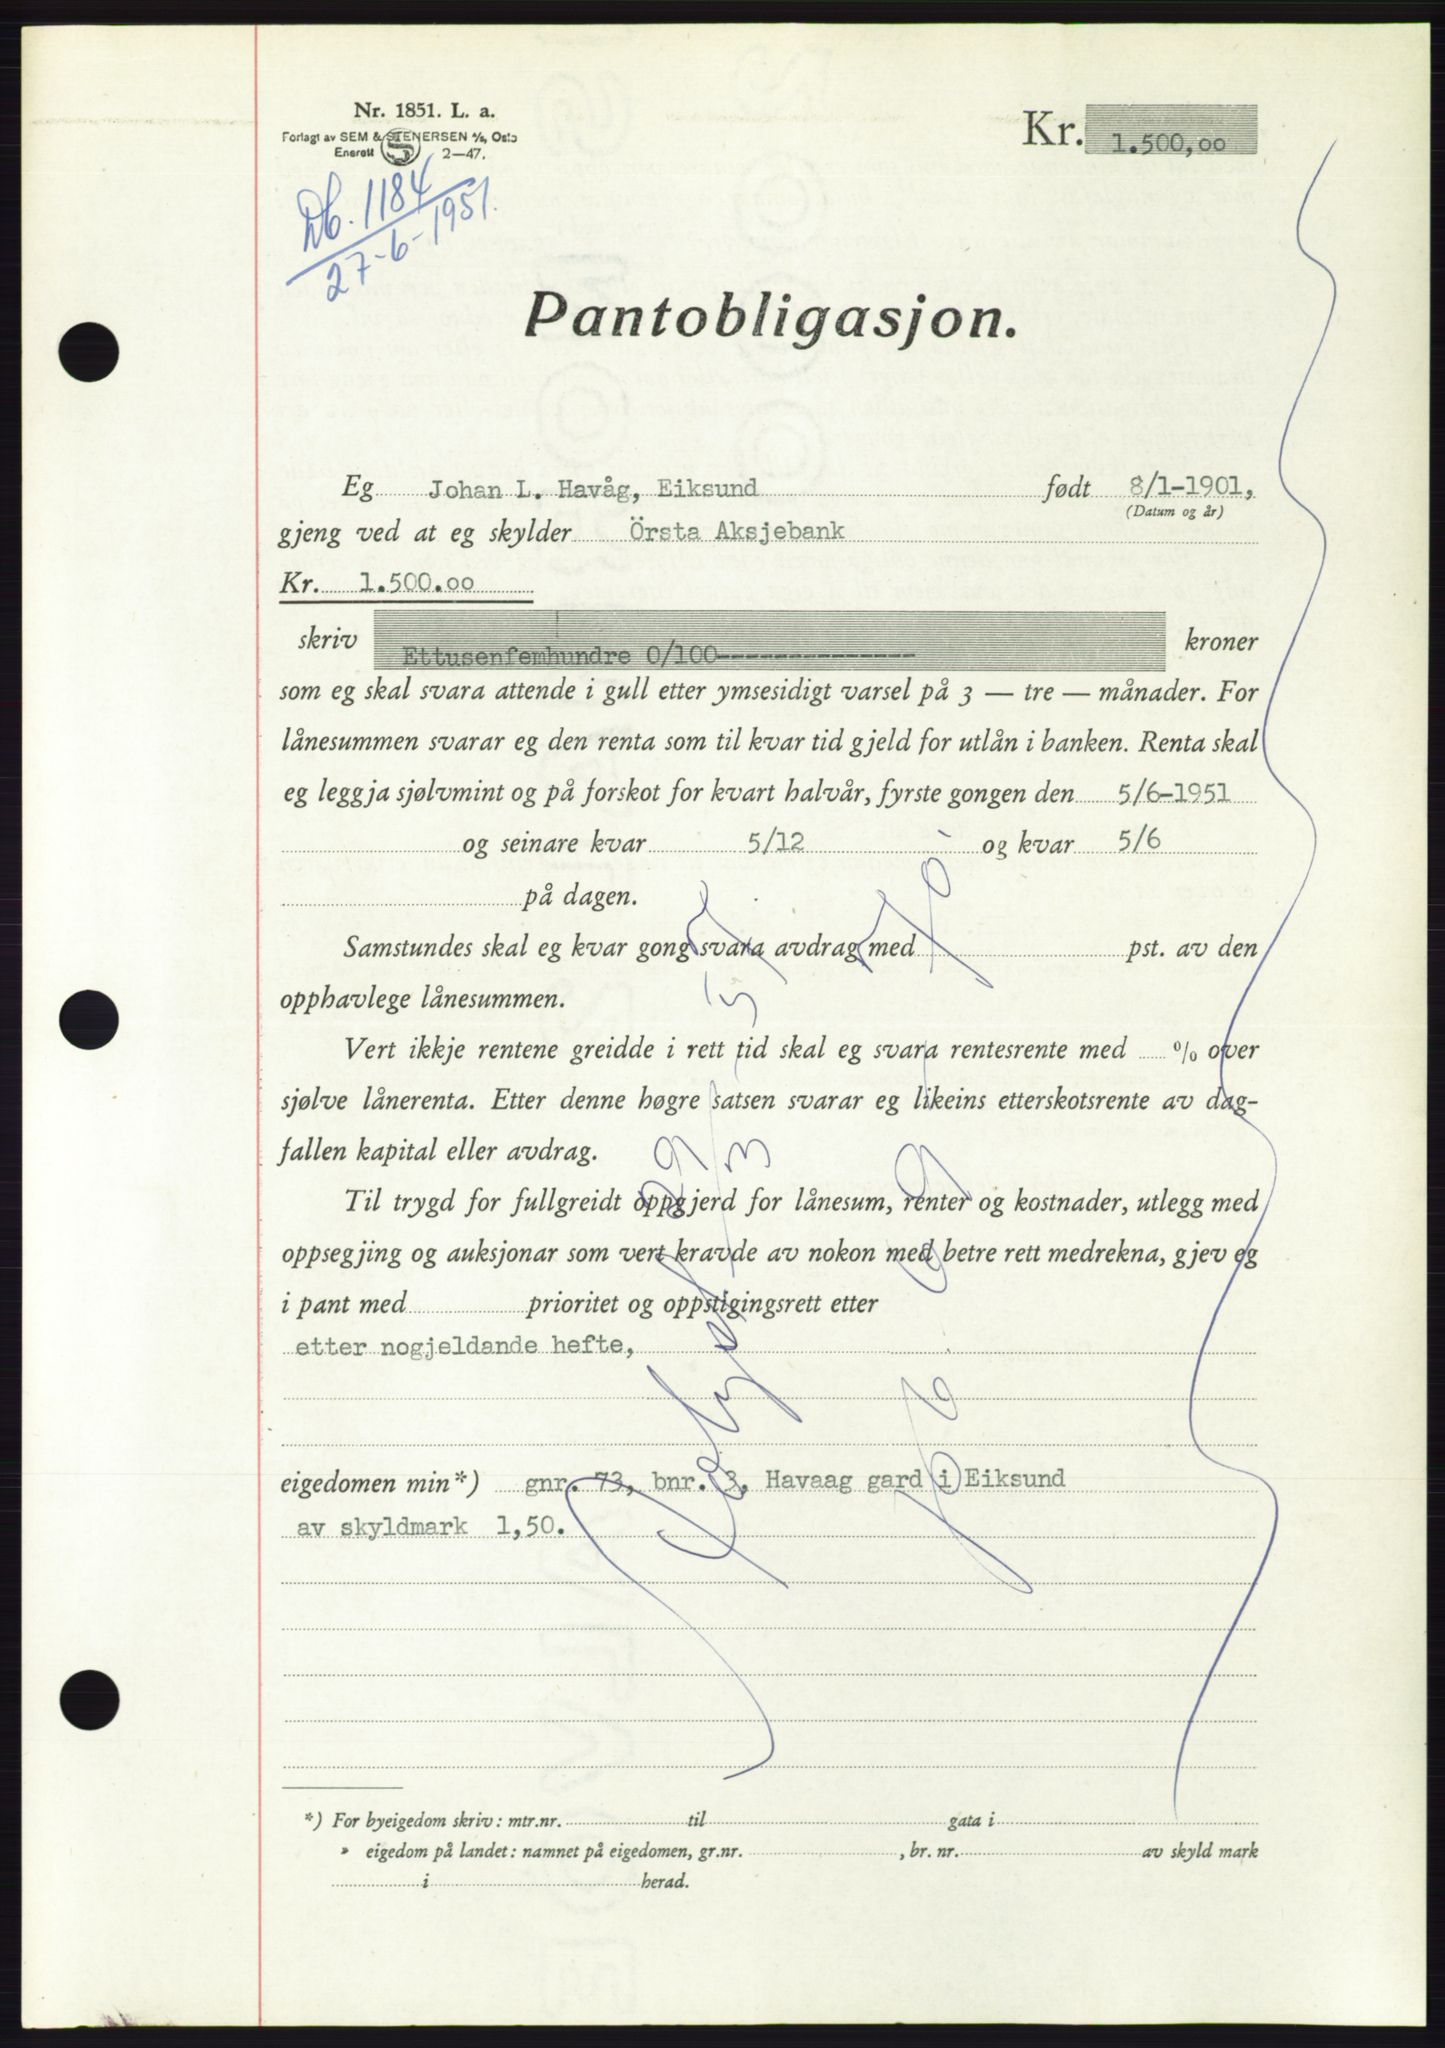 Nr. 1851. L. a.
Forlagt av SEM & STENERSEN A/S, Oslo
Enerett S 2—47.
Kr. 1.500,00
Db. 1184
27-6-1951.
Pantobligasjon.
Eg Johan L. Havåg, Eiksund født 8/1-1901,
(Datum og år)
gjeng ved at eg skylder Örsta Aksjebank
Kr. 1.500.00
skriv Ettusenfemhundre 0/100--------------- kroner
som eg skal svara attende i gull etter ymsesidigt varsel på 3 — tre — månader. For
lånesummen svarar eg den renta som til kvar tid gjeld for utlån i banken. Renta skal
eg leggja sjølvmint og på forskot for kvart halvår, fyrste gongen den 5/6-1951
og seinare kvar 5/12 og kvar 5/6
på dagen.
Samstundes skal eg kvar gong svara avdrag med pst. av den
opphavlege lånesummen.
Vert ikkje rentene greidde i rett tid skal eg svara rentesrente med % over
sjølve lånerenta. Etter denne høgre satsen svarar eg likeins etterskotsrente av dag-
fallen kapital eller avdrag.
Til trygd for fullgreidt oppgjerd for lånesum, renter og kostnader, utlegg med
oppsegjing og auksjonar som vert kravde av nokon med betre rett medrekna, gjev eg
i pant med prioritet og oppstigingsrett etter
etter nogjeldande hefte,
eigedomen min*) gnr. 73, bnr. 3, Havaag gard i Eiksund
av skyldmark 1,50.
*) For byeigedom skriv: mtr.nr. til gata i
» eigedom på landet: namnet på eigedomen, gr.nr. , br. nr. av skyld mark
i herad.